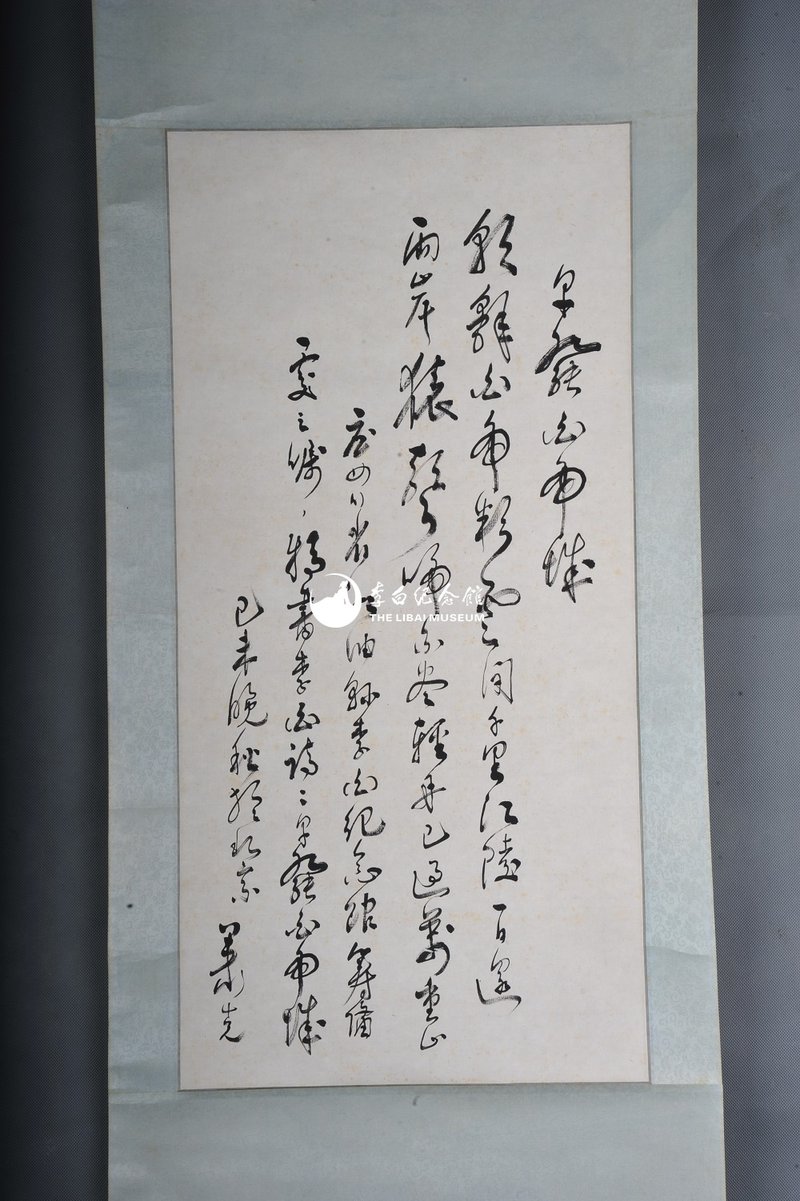 早發白帝城
朝辭白帝彩雲間千里江陵一日還
兩岸猿聲啼不盡輕舟已過萬重山
應四川省江油縣李白紀念館籌備
處之囑特書李白詩早發白帝城
己未晚秋於北京
李白纪念館
THE LIBAI MUSEUM